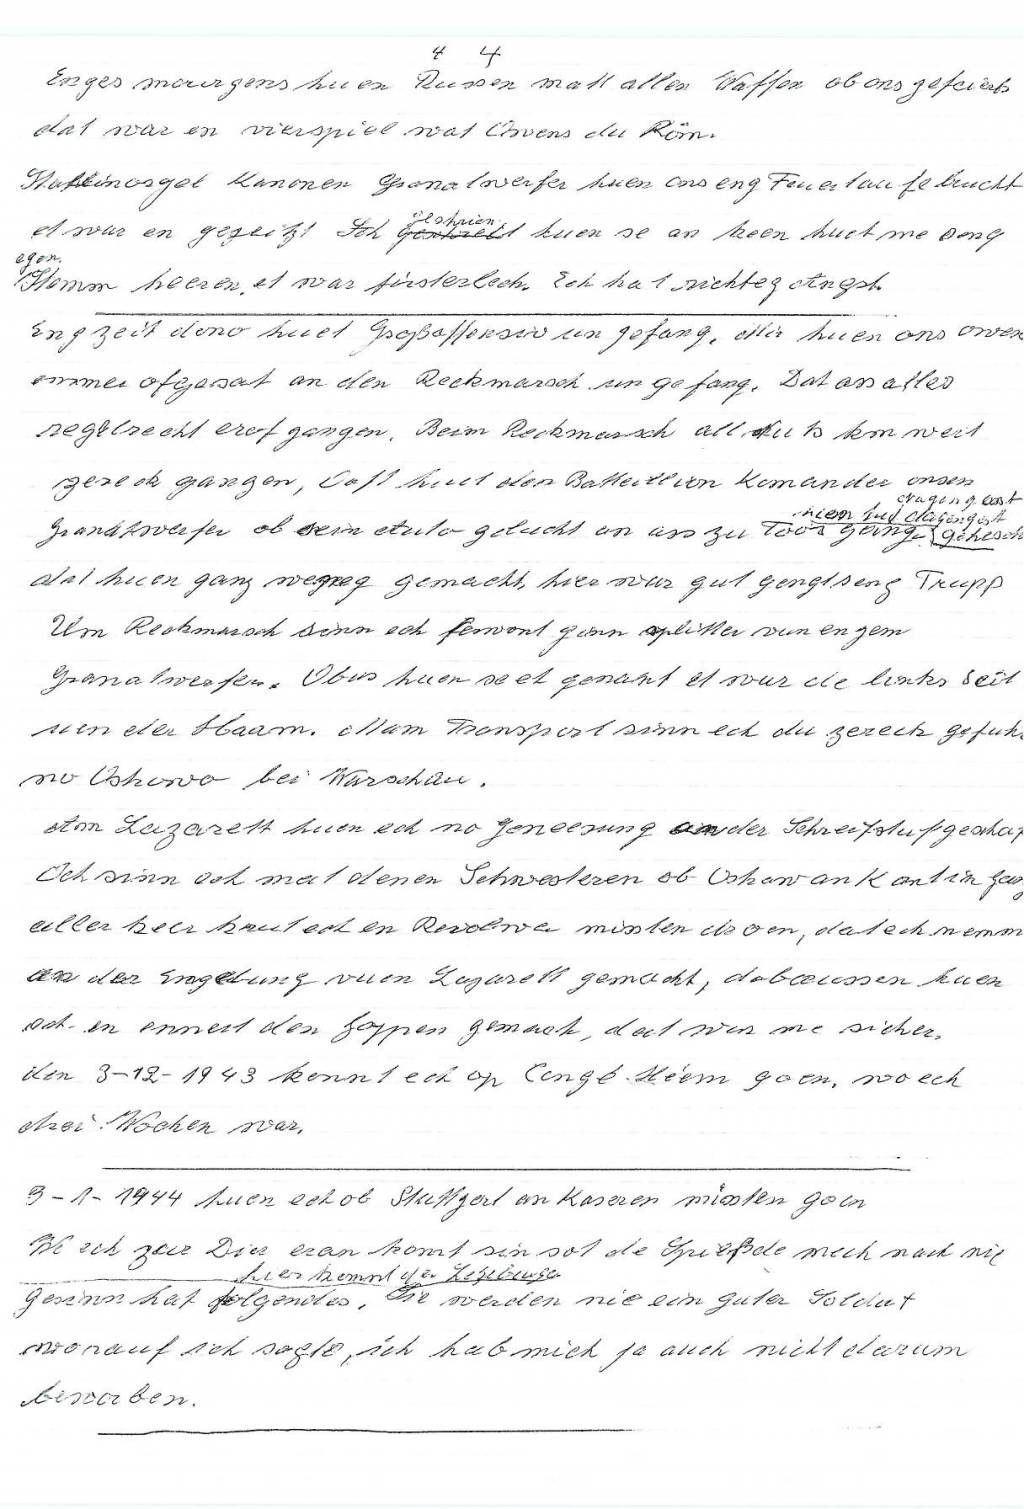 4 4
Enges mourgens huen Russen matt allen Waffen ob ons gefeiert
dat war en vierspiel wat Owens du Köm.
Stalinorgel Kanonen Granatwerfer huen ons eng Feuertaufe bruecht
et war en gegeitzt Ich geschriet huen se an keen huet me seng
geshrien
egen.
Stemm heeren, et war fürsterlech. Ech hat richteg Angst.
Eng zeit dono huet Großoffensiv un gefang. Mir huen ons owen
emmer ofgesat an den Reckmarsch un gefang. Dat as alles
regelrecht erof gangen. Beim Reckmarsch all km weit
zereck gangen, huet den Batteillion Komander onsen
dageng
hien hued dagengest
Granatwerfer ob sein Auto gelucht an ass zu Toos gang
dat huen ganz weg gemacht, hier war gut gengt seng Trupp
Um Reckmarsch sinn ech ferwont ginn splitter vun engem
Granatwerfer. Obus huen se et genant et war de links Seit
vun der Haam. Mam Transport sinn ech du zereck gefuh
no Oskowo bei Warschau.
Am Lazarett huen ech no Geneesung an der Schreifstuf geschaf
Ich sinn och mat denen Schwesteren ob Oskow an Kantin gang
aller keer hout ech en Revolwer missten droen, dat ech nemm
an der Emgebung vuen Lazarett gemacht, dobaussen huen
ech en ennert den Joppen gemach, dat war me sicher.
den 3-12-1943 konnt ech op Congé Héem goen, wo ech
drei Wochen war.
3-1-1944 huen ech ob Stuttgert an Kaseren missten goen
Wi ech zur Dier eran komt sin sot de Spieß de mech nach nie
hier kommt der Letzeburger
gesinn hat folgendes. Sie werden nie ein guter Soldat
worauf ich sagte, ich hab mich ja auch nicht darum
beworben.